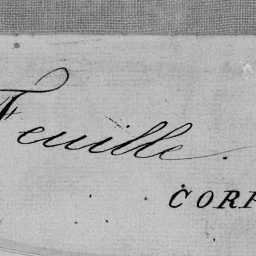 Feuille.
CORP